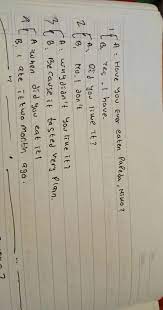 1 { A: Have you ever eaten Papeda, Niko?
B: Yes, I have.
2 { A: Did you like it?
B: No, I don't
3 { A: Why didn't you like it?
B: Because it tasted very plain.
4 { A: When did you eat it?
B: I ate it two month ago.